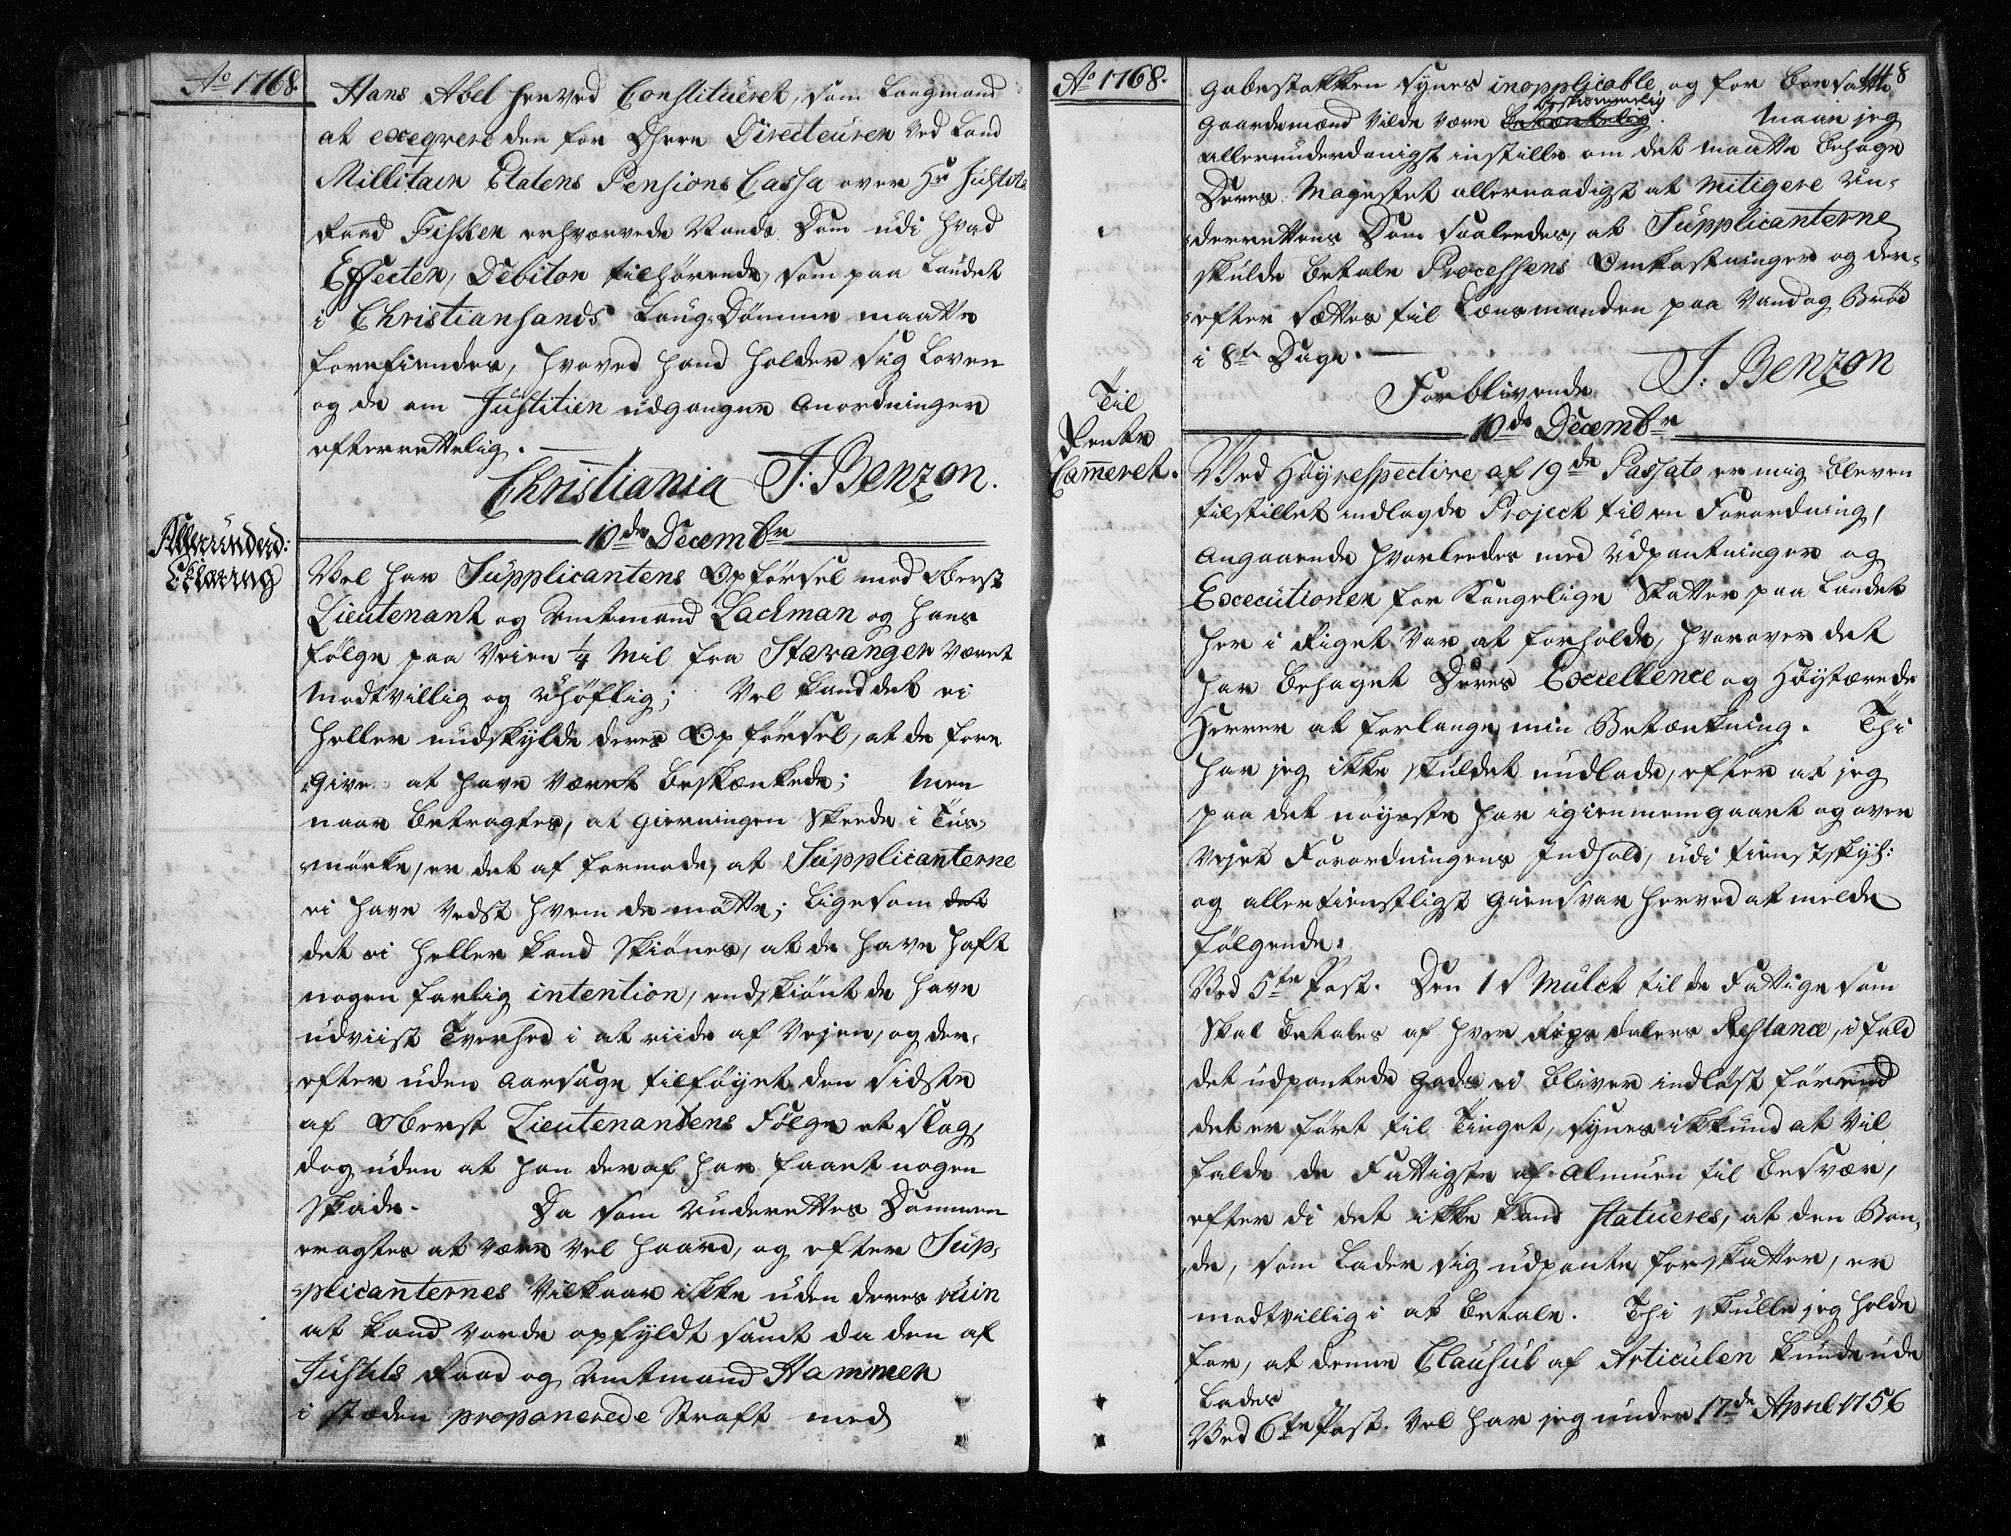 Ao 1768.
Hans Abel herved Constitueret, som Laugmand
at exeqvere den for Hhrr Directeuren ved Land
Millitair Etatens Pensions Cassa over Hr Justits
Raad Fisker erhvervede Raads Dom udi hvad
Effecter, Debitor tilhørende, som paa Landet
i Christiansands Laug-Dømme maatte
forefindes, hvorved hand holder sig Loven
og de om Justitien udgangne Anordninger
efterrettelig.
Christiania J: Benzon.
10de Decembr
Allerunderd:
Eklæring
Vel har Supplicantens Opførsel mod Oberst
Lieutenant og Amtmand Lachman og hans
følge paa Veien 1/4 Mil fra Stavanger været
modtvillig og uhøflig; Vel kand det ei
heller undskylde deres Opførsel, at de fore
give at have været beskænkede; Men
naar betragtes, at Gierningen skeede i Tus-
mørke, er det at formode, at Supplicanterne
ei have vedst hvem de møtte; ligesom det
det ei heller kand skiønes, at de have haft
nogen farlig intention, endskiønt de have
udviist Tverhed i at riide af Vejen, og der-
efter uden Aarsage tilføyet den sidste
af Oberst Lieutenantens Følge et slag,
dog uden at han deraf har faaet nogen
Skade. Da som Underettes Dommen
eragtes at være vel haard, og efter Sup-
plicanternes Vilkaar ikke uden deres ruin
at kand vorde opfyldt samt da den af
Justits Raad og Amtmand Hammer
i stæden proponerede Straft med
Ao 1768.
118
Gabestokken synes inapplicable, og for bosatte
beskiemmelig
Gaardemænd vilde være betænkelig. Maae jeg
allerunderdanigst instille om det maatte behage
Deres Mayestet allernaadigst at mitigere Un-
derrettens Dom saaledes, at Supplicanterne
skulde betale Processens Omkostninger og der-
efter sættes til Lensmanden paa Vand og Brød
i 8te Dage.
Forblivende J: Benzon
10de Decembr
Til
Rente
Cameret.
Ved Høyrespective af 19de Passato er mig bleven
tilstillet indlagde Project til en Forordning,
angaaende hvorledes med Udpantninger og
Executioner for Kongelige Skatter paa Landet
her i Riget var at forholde, hvorover det
har behaget Deres Excellence og Høystærede
Herrer at forlange min Betænkning. Thi
har jeg ikke skuldet undlade, efter at jeg
paa det nøyeste har igiennemgaaet og over
vejet Forordningens Indhold, udi tienstskyl:
og allertienstligst Giensvar herved at melde
følgende:
Ved 5te Post. Den 1 s Mulct til de Fattige som
skal betales af hver Rigs dalers Restance, i fald
det udpantede Gods ei bliver indløst førend
det er ført til Tinget, synes ikkund at vil
falde de Fattigste af Almuen til besvær,
efter di det ikke kand statueres, at den Bon-
de, som lader sig udpante for skatter, er
modtvillig i at betale. Thi skulle jeg holde
for, at denne Clausul af Articulen kunde ude
lades
Ved 6te Post. Vel har jeg under 17de April 1756